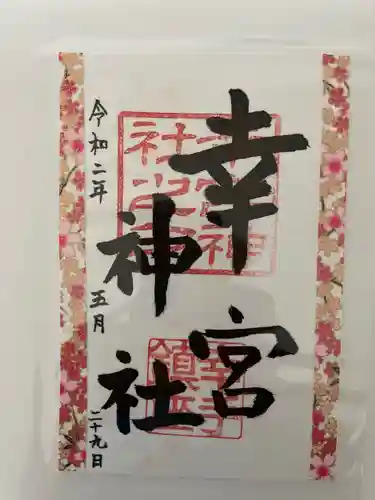 幸宮
神社
令和二年 五月 二十九日